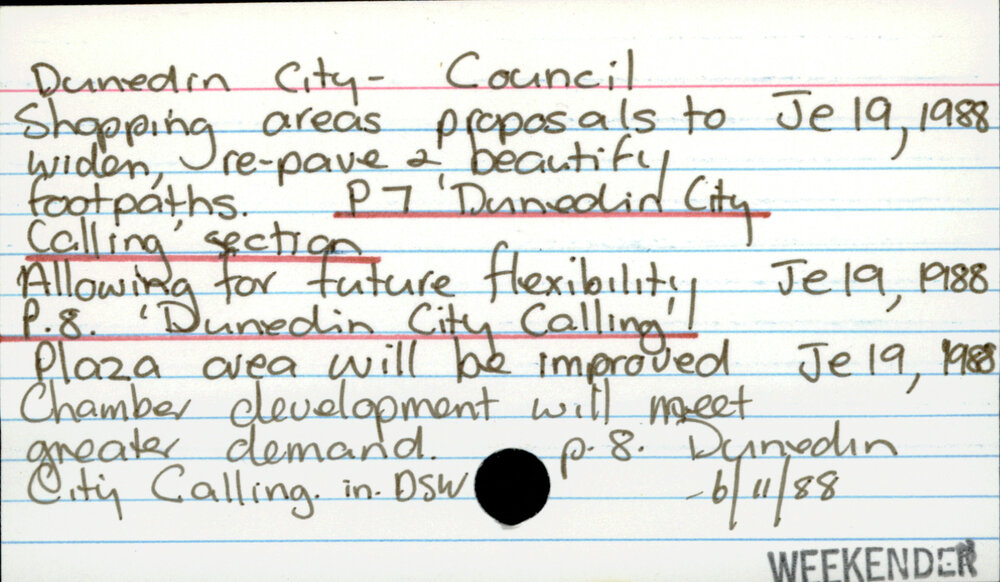 Dunedin City - Council
Shopping areas proposals to Je 19, 1988
widen, re-pave & beautify
footpaths. P 7 'Dunedin City
Calling' section
Allowing for future flexibility Je 19, 1988
P.8. 'Dunedin City Calling'
Plaza area will be improved Je 19, 1988
Chamber development will meet
greater demand. p. 8. Dunedin
City Calling. in. DSW - 6/11/88
WEEKENDER